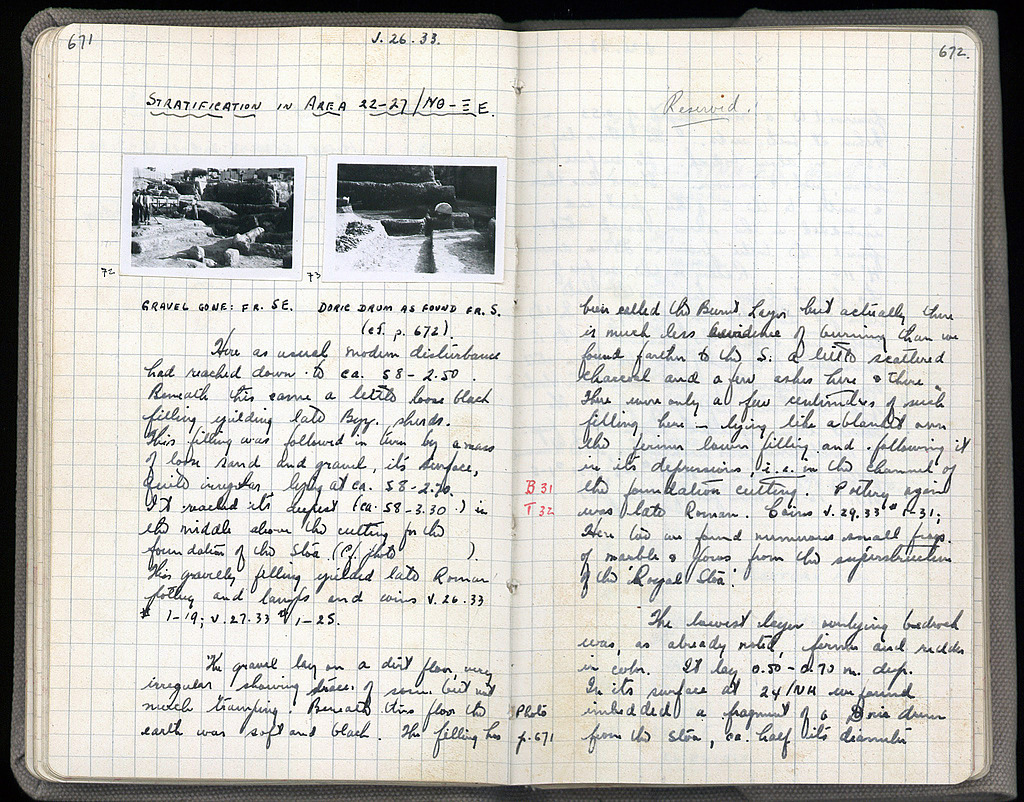 671
V. 26. 33.
STRATIFICATION IN AREA 22-27/ΝΘ-Ξ E.
72
73
GRAVEL GONE: FR. SE.
DORIC DRUM AS FOUND FR. S.
(cf. p. 672).
Here as usual modern disturbance
had reached down to ca. 58-2.50.
Beneath this came a little loose black
filling yielding late Byz. sherds.
This filling was followed in turn by a mass
of loose sand and gravel, it's surface,
quite irregular lying at ca. 58-2.70.
It reached its deepest (ca. 58-3.30.) in
the middle above the cutting for the
foundation of the Stoa (Cf. photo ).
This gravelly filling yielded late Roman
pottery and lamps and coins V.26.33
# 1-19; V.27.33 # 1-25.
The gravel lay on a dirt floor, very
irregular showing traces of some but not
much tramping. Beneath this floor the
earth was soft and black. The filling has
672.
Reservid.
been called the Burnt Layer but actually there
is much less evidence of burning than we
found farther to the S: a little scattered
charcoal and a few ashes here & there.
There were only a few centimetres of such
filling here - lying like a blanket over
the firmer lower filling and following it
in its depressions, i.e. in the channel of
B 31
the foundation cutting. Pottery again
T 32
was late Roman. Coins V.29.33 # 1-31;
Here too we found numerous small frags.
of marble & poros from the superstructure
of the 'Royal Stoa'.
The lowest layer overlying bedrock
was, as already noted, firmer and redder
in color. It lay 0.50-0.70 m. deep.
In its surface at 24/ΝΗ we found
Photo
imbedded a fragment of a Doric drum
p. 671
from the stoa, ca. half its diameter